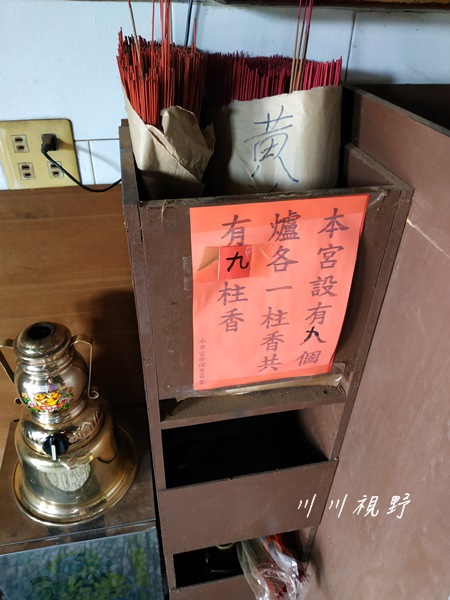 黃
本宮設有九個
爐各一柱香共
有九柱香
川川視野